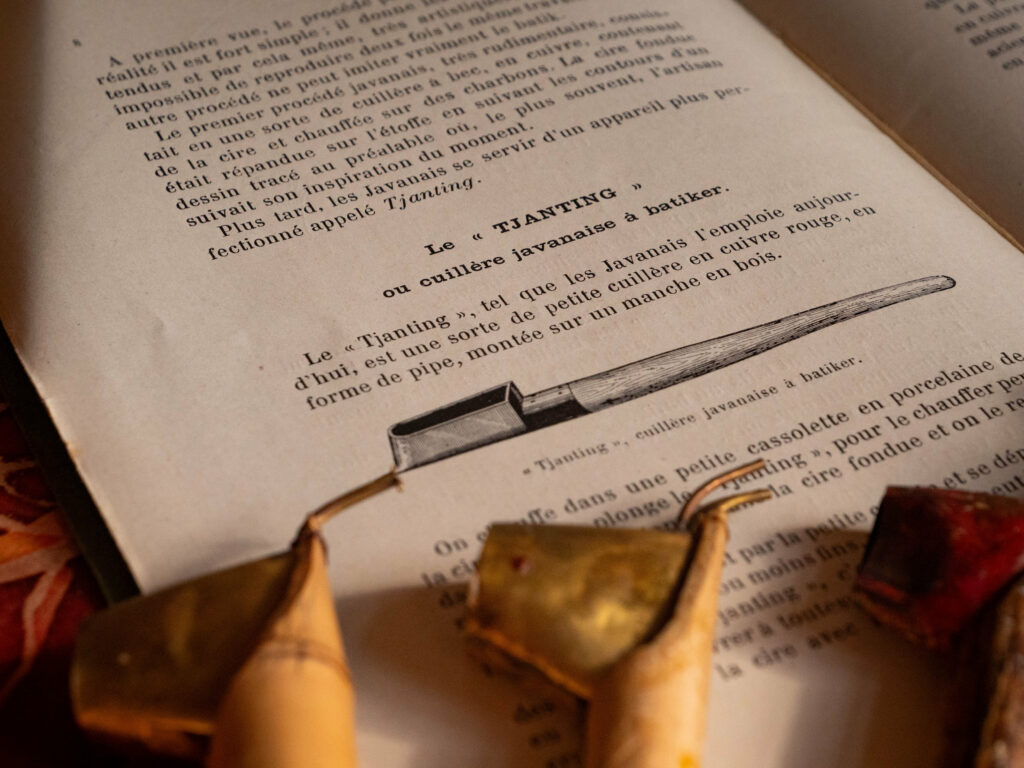 8
A première vue, le procédé
réalité il est fort simple ; il donne
tendus et par cela même, très artistiques
impossible de reproduire deux fois le même travail
autre procédé ne peut imiter vraiment le batik.
Le premier procédé javanais, très rudimentaire, consis-
tait en une sorte de cuillère à bec, en cuivre, contenant
de la cire et chauffée sur des charbons. La cire fondue
était répandue sur l'étoffe en suivant les contours d'un
dessin tracé au préalable ou, le plus souvent, l'artisan
suivait son inspiration du moment.
Plus tard, les Javanais se servir d'un appareil plus per-
fectionné appelé Tjanting.
Le « TJANTING »
ou cuillère javanaise à batiker.
Le « Tjanting », tel que les Javanais l'emploie aujour-
d'hui, est une sorte de petite cuillère en cuivre rouge, en
forme de pipe, montée sur un manche en bois.
« Tjanting », cuillère javanaise à batiker.
On chauffe dans une petite cassolette en porcelaine de
la cire plonge le Tjanting », pour le chauffer
la cire fondue et on le
et par la petite et se
ou moins fins
à toute
la cire avec
des
en